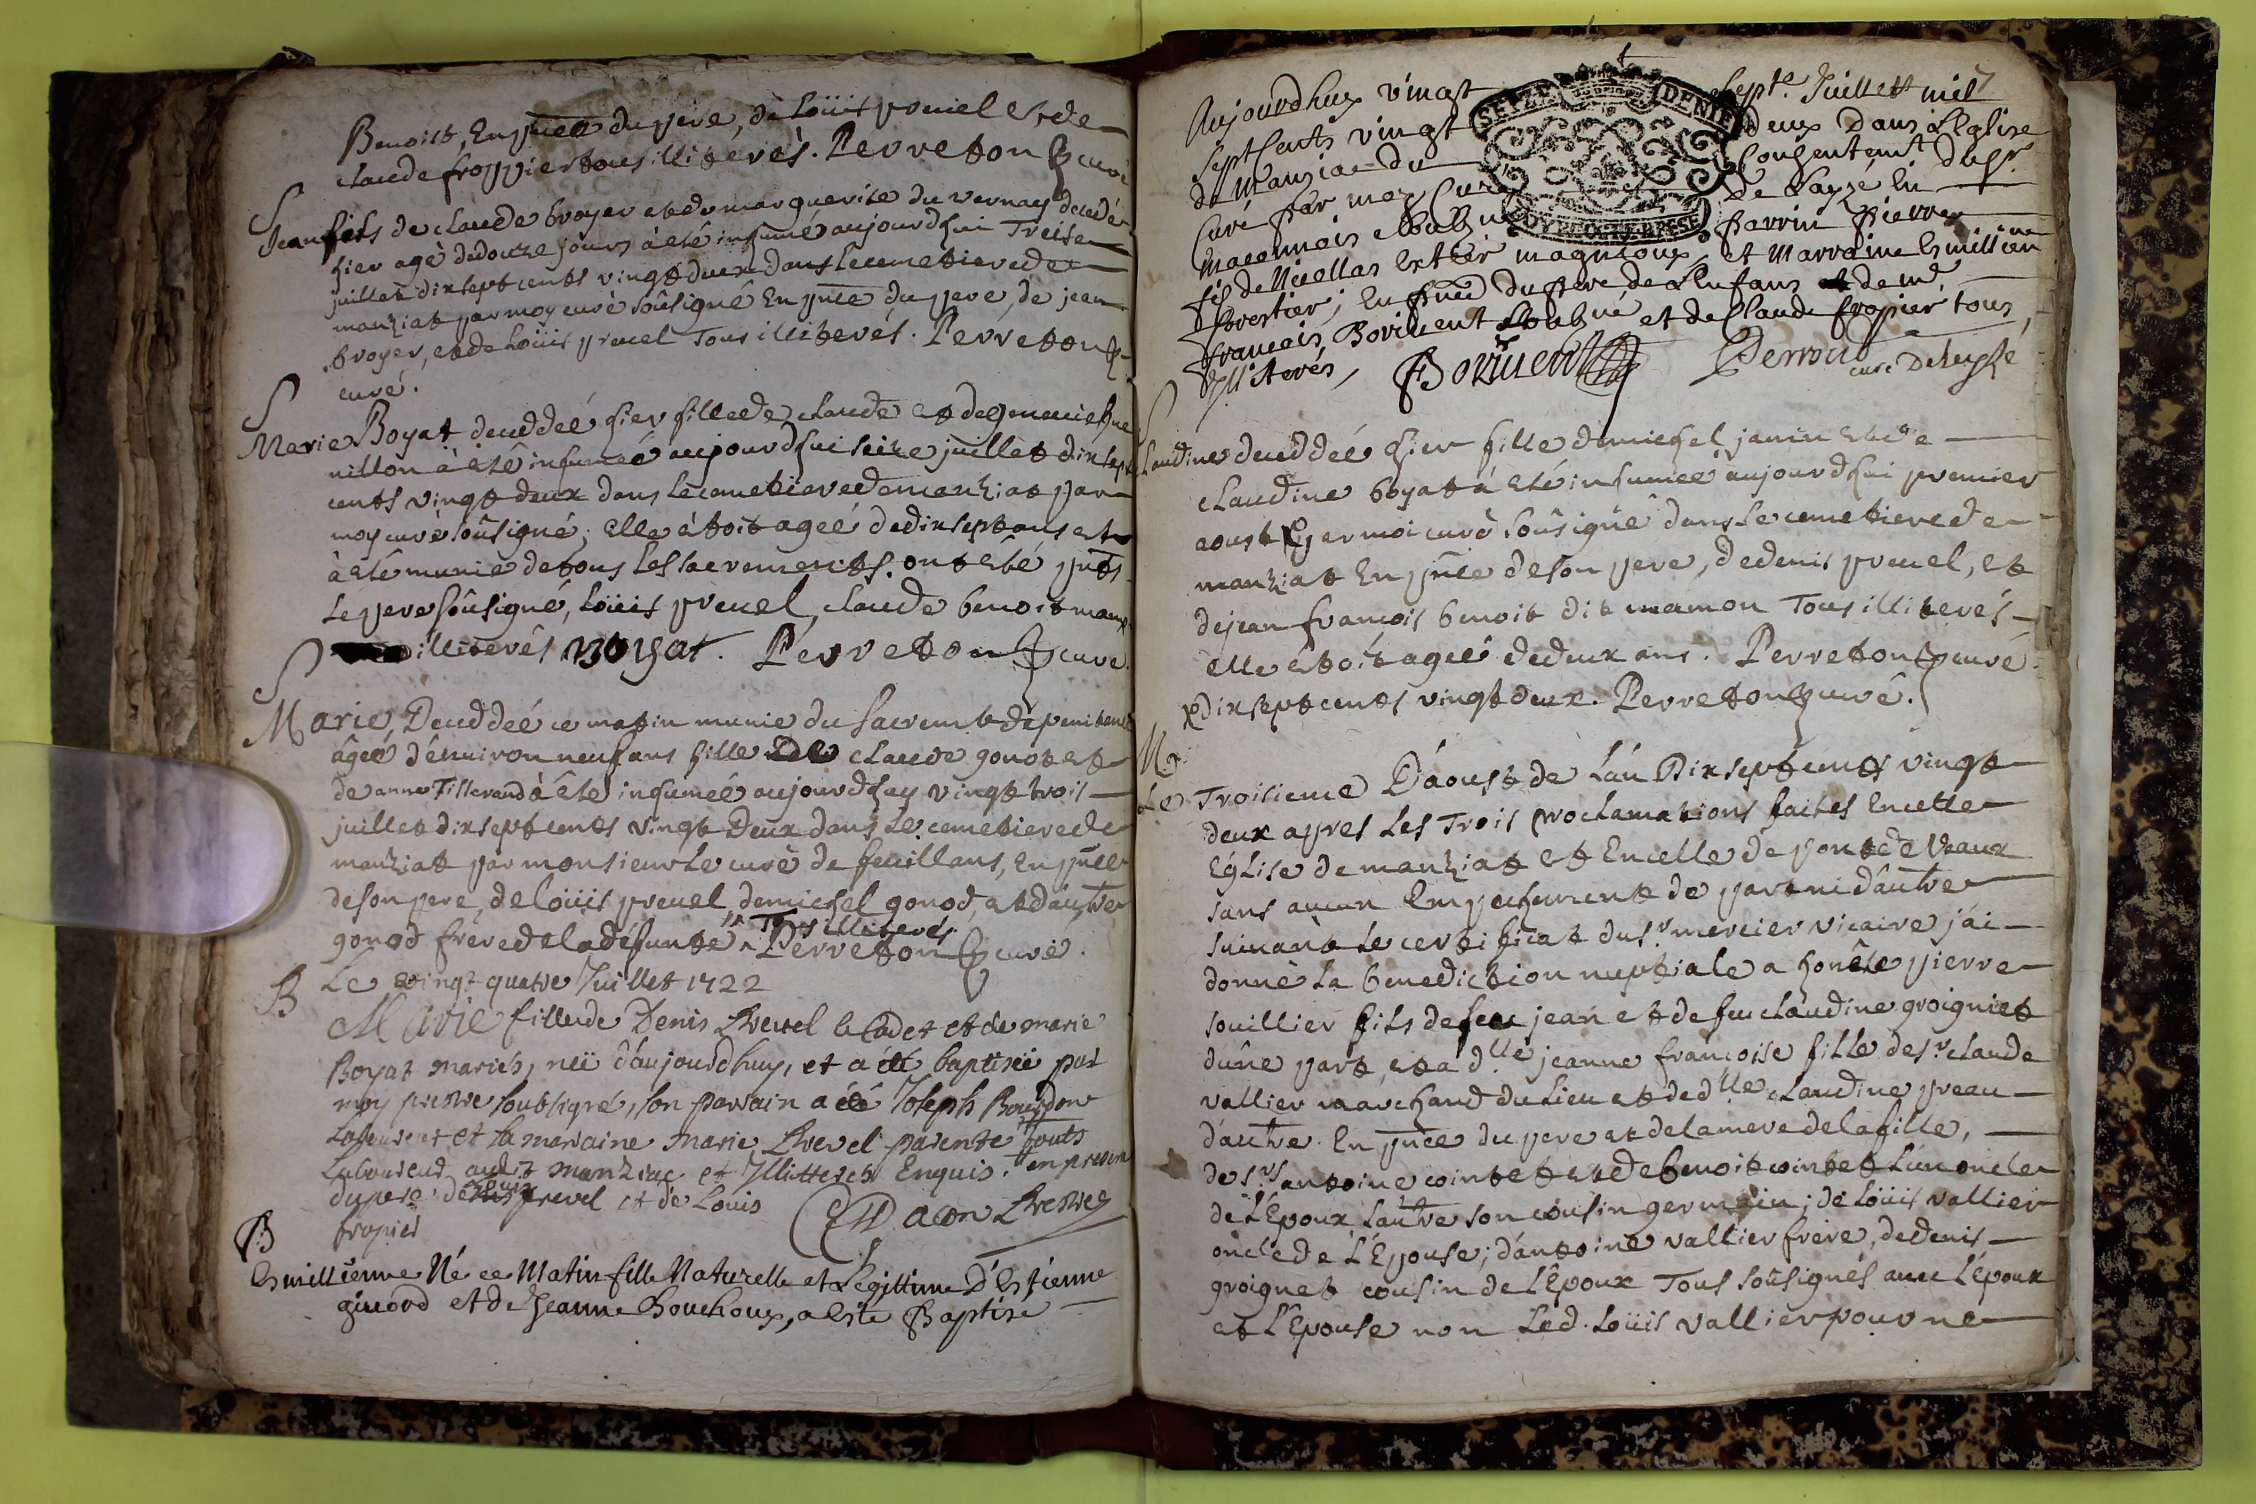 Benoist, En pñce du pere, de Loüis preuel et de
claude froppier tous illiterés. Perreton curé
S
Jean fils de claude broyer et de marguerite du vernay decedé
hier agé de douze jours à eté inhumé aujourdhui Treise
juillet dix sept cents vingt deux dans le cemetiere de
manziat par moy curé soûsigné En pñce du pere, de jean
broyer, et de Loüis preuel Tous illiterés. Perreton
curé.
S
Marie Boyat deceddeé hier fille de claude et de
nillon à eté inhumeé aujourdhui seize juillet dix sept
cents vingt deux dans le cemetiere de manziat par
moy curé soûsigné; elle étoit ageé de dix sept ans et
à eté munie de tous les sacrements, ont eté pñts
Le pere soûsigné, Loüis preuel, claude benoit
illiterés Boyat. Perreton curé.
S
Marie Deceddeé ce matin munie du sacremt de penitence
âgeé d'environ neuf ans fille De claude gonot et
de anne Tillerand à êté inhumeé aujourdhuy vingt trois
juillet dix sept cents vingt Deux dans Le cemetiere de
manziat par monsieur Le curé de feuillans, En pñce
de son pere, de Loüis preuel de michel gonod, et d'autre
gonod frere de la défunte Tous illiterés. Perreton curé.
B
Le vingt quatre Juillet 1722
Marie fille de Denis Prevel le Cadet et de marie
Boyat mariés, neé d'aujourdhuy, et a été baptiseé par
moy prestre soubsigné, son parrain a été Joseph Bourdon
Laboureur et la marraine Marie Prevel parente touts
Laboureurs audit Manziac et Illitterés Enquis. en presence
du pere de Louis prevel et de Louis
fropier Dacon Prestre
B
Esmillienne Né ce Matin fille Naturelle et Legittime D'Estienne
giuord et de Jeanne Bouchoux, a Esté Baptisé
Aujourdhuy vingt sept.e Juillet mil
sept Cents vingt deux Dans L'Eglise
de Manziac du Consentemt du Sr
Curé par moy Curé De Layzé En
maconnais soubzné parrin Pierre
fis de Nicollas Extier magnioux, et Marraine Esmillienne
forestier; En pñce du pere de L'Enfans et de me
francois Boriuent soubzné et de Claude fropier tous
Illiterés, Boriuent Perroud curé De Leyzé
SEIZE DENIE
BRESSE
S
Claudine deceddeé hier fille de michel janin et de
claudine boyat à eté inhumeé aujourdhui premier
aoust par moi curé soûsigné dans le cemetiere de
manziat En pñce de son pere, de denis preuel, et
de jean françois benoit dit mamon Tous illiterés
elle étoit ageé de deux ans. Perreton curé.
dix sept cents vingt deux. Perreton curé.
M
Le Troisieme D'aoust de L'an Dix sept cents vingt
deux apres Les Trois proclamations faites En cette
Eglise de manziat et En celle de pont de Vaux
sans aucun Empechement de part ni d'autre
suivant Le certificat du sr mercier vicaire j'ai
donné La benediction nuptiale a honête pierre
souillier fils de feu jean et de feu claudine groigniet
d'une part, et a dlle jeanne françoise fille de sr claude
vallier marchand du Lieu et de dlle claudine preau
d'autre. En pñce du pere et de la mere de la fille,
de srs antoine cointet et de benoit cointet L'un oncle
de L'Epoux L'autre son cousin germain; de Loüis vallier
oncle de L'Epouse; d'antoine vallier frere, de denis
groignet cousin de L'Epoux Tous soûsignés avec L'Epoux
et L'Epouse non Led. Loüis vallier pour ne